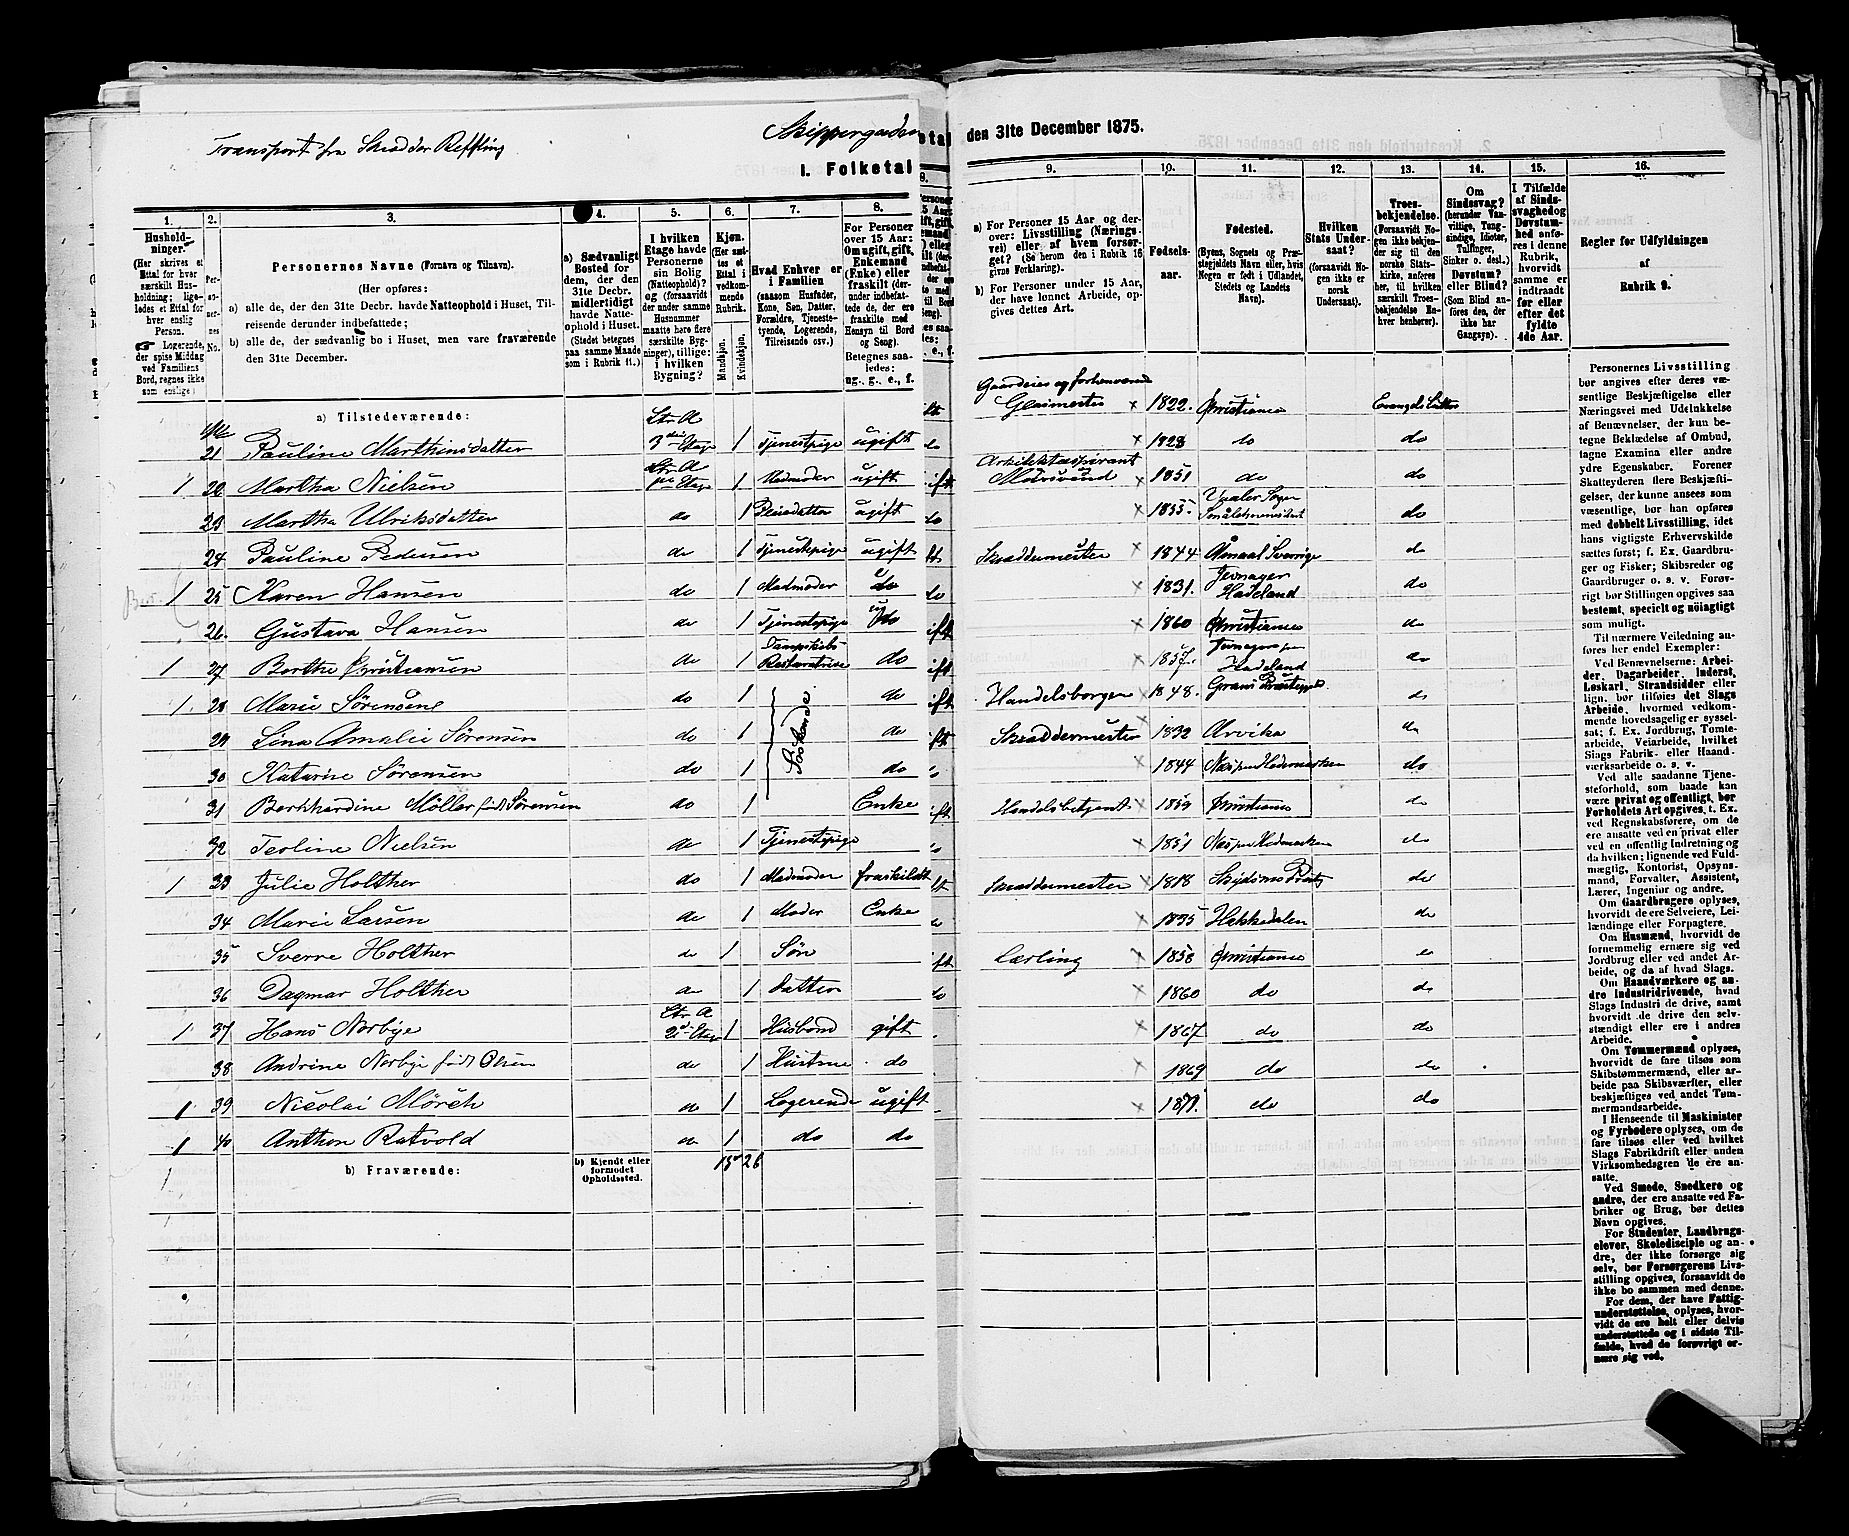 Transport fra Skrædder Reffling
Skippergaden
I. Folketal
den 31te December 1875.
1. 2. 3. 4. 5. 6. 7. 8.
Hushold-
ninger.
(Her skrives et
Ettal for hver
særskilt Hus-
holdning; lige-
ledes et Ettal for
hver enslig
Person.
Logerende,
der spise Middag
ved Familiens
Bord, regnes ikke
som enslige.)
Per-
so-
ner-
nes
No.
Personernes Navne (Fornavn og Tilnavn).
(Her opføres:
a) alle de, der den 31te Decbr. havde Natteophold i Huset, Til-
reisende derunder indbefattede;
b) alle de, der sædvanlig bo i Huset, men vare fraværende
den 31te December.
a) Sædvanligt
Bosted for
dem, der den
31te Decbr.
midlertidigt
havde Natte-
ophold i Huset.
(Stedet betegnes
paa samme Maade
som i Rubrik 11.)
I hvilken
Etage havde
Personerne
sin Bolig
(Natteophold)?
og (forsaavidt
der under samme
Husnummer
maatte høre flere
særskilte Byg-
ninger), tillige:
i hvilken
Bygning?
Kjøn.
(Her sæt-
tes et
Ettal i
vedkom-
mende
Rubrik.)
Mandkjøn.
Kvindekjøn.
Hvad Enhver er
i Familien
(saasom Husfader,
Kone, Søn, Datter,
Forældre, Tjeneste-
tyende, Logerende,
Tilreisende osv.)
For Personer
over 15 Aar:
Om ugift, gift,
Enkemand
(Enke) eller
fraskilt (der-
under indbefat-
tede de, der ere
fraskilte med
Hensyn til Bord
og Seng).
Betegnes saa-
ledes:
ug., g., e., f.
a) Tilstedeværende:
21 Pauline Marthinsdatter Ltr. A 3die Etage 1 Tjenestpige ugift
1 22 Martha Nielsen Ltr. A Etage 1 Madmoder ugift
23 Martha Ulriksdatter do 1 Pleiedatter ugift
24 Pauline Pedersen do 1 Tjenestpige ugift
1 25 Karen Hansen do 1 Madmoder do
26. Gustava Hansen do 1 Tjenestpige do
1 27 Berthe Christiansen do 1 Dampskibs Restauratrise do
1 28 Marie Sørensene do 1 do
29 Lina Amalie Sørensen do 1 Søskende do
30 Katarine Sørensen do 1 do
31 Bernhardine Møller født Sørensen do 1 Enke
32 Teoline Nielsen do 1 Tjenestpige
1 33 Julie Holther do 1 Madmoder fraskildt
34 Marie Larsen do 1 Moder Enke
35 Sverre Holther do 1 Søn
36 Dagmar Holther do 1 Datter
1 37 Hans Norbye Ltr. A 2den Etage 1 Husbond gift
38 Andrine Norbye født Olsen do 1 Hustrue do
1 39 Nicolai Mörch do 1 Logerende ugift
1 40 Anthon Ratvold do 1 do do
b) Fraværende:
b) Kjendt eller
formodet
Opholdssted.
15 26
9. 10. 11. 12. 13. 14. 15. 16.
a) For Personer 15 Aar og der-
over: Livsstilling (Nærings-
vei) eller af hvem forsør-
get? (Se herom den i Rubrik 16
givne Forklaring).
b) For Personer under 15 Aar,
der have lønnet Arbeide, op-
gives dettes Art.
Fødsels-
aar.
Fødested.
(Byens, Sognets og Præ-
stegjeldets Navn eller, hvis
Nogen er født i Udlandet,
Stedets og Landets
Navn).
Hvilken
Stats Under-
saat?
(forsaavidt No-
gen ikke er
norsk
Undersaat).
Troes-
bekjendelse.
(Forsaavidt No-
gen ikke bekjen-
der sig til den
norske Stats-
kirke, anføres
her, til hvilken
særskilt Troes-
bekjendelse En-
hver henhører).
Om
Sindssvag?
(herunder Van-
vittige, Tung-
sindige, Idioter,
Tullinger,
Sinker o. desl.)
Døvstum?
eller Blind?
(Som Blind an-
føres den, der
ikke har
Gangsyn).
I Tilfælde
af Sinds-
svaghed og
Døvstum-
hed anfø-
res i denne
Rubrik,
hvorvidt
samme er
indtraadt
før eller
efter det
fyldte
4de Aar.
Regler for Udfyldningen
af
Rubrik 9.
Gaardeier og forhenværend
Glasmester × 1822. Christiania Evangelsk Luthe
× 1828 do do
Arkitektaspirant × 1851 do do
× 1855 Vaaler Sogn Smålehnenes Amt do
Skræddermester × 1844 Åmaal Sverrige do
× 1831. Jevnager Hadeland do
× 1860 Christiania do
× 1857. Jevnager Hadeland do
Handelsborger × 1848. Grans Præstegjeld do
Skræddermester × 1832 Arvika do
× 1844 Næs paa Hedemarken do
Handelsbetjent × 1859 Christiania do
× 1851 Næs paa Hedmarken do
Skræddermester × 1818 Skydsmo Præstg do
× 1835 Hakkedalen do
Lærling × 1858 Christiania do
× 1860 do do
× 1867 do do
× 1869 do do
× 1871. do do
Personernes Livsstilling
bør angives efter deres væ-
sentlige Beskjæftigelse eller
Næringsvei med Udelukkelse
af Benævnelser, der kun be-
tegne Beklædelse af Ombud,
tagne Examina eller andre
ydre Egenskaber. Forener
Skatteyderen flere Beskjæfti-
gelser, der kunne ansees som
væsentlige, bør han opføres
med dobbelt Livsstilling, idet
hans vigtigste Erhvervskilde
sættes først; f. Ex. Gaardbru-
ger og Fisker; Skibsreder og
Gaardbruger o. s. v. Forøv-
rigt bør Stillingen opgives saa
bestemt, specielt og nøiagtigt
som muligt.
Til nærmere Veiledning an-
føres her endel Exempler:
Ved Benævnelserne: Arbei-
der, Dagarbeider, Inderst,
Løskarl, Strandsidder eller
lign. bør tilføies det Slags
Arbeide, hvormed vedkom-
mende hovedsagelig er syssel-
sat; f. Ex. Jordbrug, Tømte-
arbeide, Veiarbeide, hvilket
Slags Fabrik- eller Haand-
værksarbeide o. s. v.
Ved alle saadanne Tjene-
steforhold, som baade kan
være privat og offentligt, bør
Forholdets Art opgives, t. Ex.
ved Regnskabsførere, om de
ere ansatte ved en privat eller
ved en offentlig Indretning og
da hvilken; lignende ved Fuld-
mægtig, Kontorist, Opsyns-
mand, Forvalter, Assistent,
Lærer, Ingeniør og andre.
Om Gaardbrugere oplyses,
hvorvidt de ere Selveiere, Lei-
lændinge eller Forpagtere.
Om Husmænd, hvorvidt de
fornemmelig ernære sig ved
Jordbrug eller ved andet Ar-
beide, og da af hvad Slags.
Om Haandværkere og an-
dre Industridrivende, hvad
Slags Industri de drive, samt
hvorvidt de drive den selv-
stændigt eller ere i andres
Arbeide.
Om Tømmermænd oplyses,
hvorvidt de fare tilsøs som
Skibstømmermænd, eller ar-
beide paa Skibsværfter, eller
beskjæftiges ved andet Tøm-
mermandsarbeide.
I Henseende til Maskinister
og Fyrbødere oplyses, om de
fare tilsøs eller ved hvilket
Slags Fabrikdrift eller anden
Virksomhedsgren de ere an-
satte.
Ved Smede, Snedkere og
andre, der ere ansatte ved Fa-
briker og Brug, bør dettes
Navn opgives.
For Studenter, Landbrugs-
elever, Skoledisciple og an-
dre, der ikke forsørge sig
selv, bør Forsørgerens Livs-
stilling opgives, forsaavidt de
ikke bo sammen med denne.
For dem, der have Fattig-
understøttelse, oplyses, hvor-
vidt de ere helt eller delvis
understøttede og i sidste Til-
fælde, hvad de forøvrigt er-
nære sig ved.